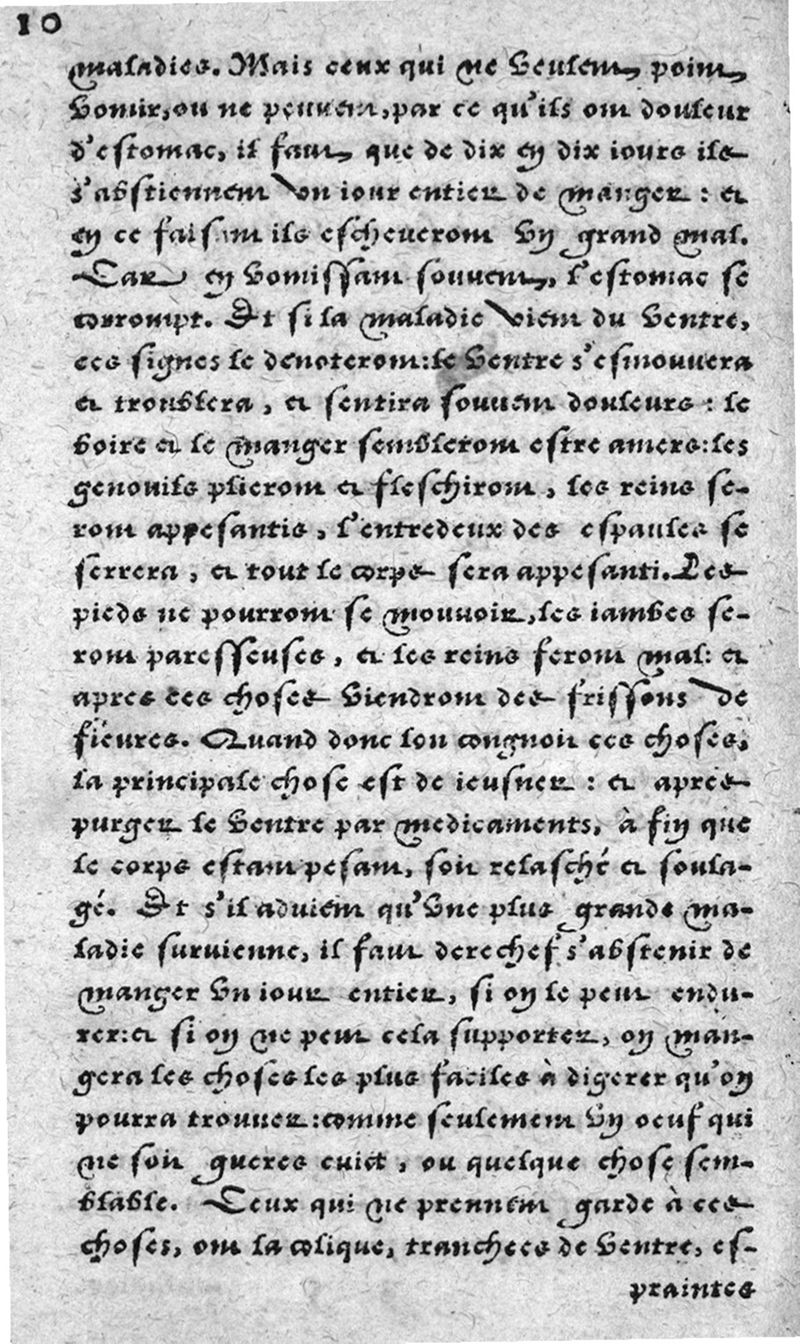 10
maladies. Mais ceux qui ne veulent point
vomir, ou ne peuuent, par ce qu'ils ont douleur
d'estomac, il faut que de dix en dix iours ils
s'abstiennent vn iour entier de manger : et
en ce faisant ils escheueront vn grand mal.
Car en vomissant souuent, l'estomac se
corrompt. Et si la maladie vient du ventre,
ces signes le denoteront: le ventre s'esmouuera
et troublera, et sentira souuent douleurs : le
boire et le manger sembleront estre amers: les
genouils plieront et fleschiront, les reins se-
ront appesantis, l'entredeux des espaules se
serrera, et tout le corps sera appesanti. Les
pieds ne pourront se mouuoir, les iambes se-
ront paresseuses, et les reins feront mal: et
apres ces choses viendront des frissons de
fieures. Quand donc lon congnoit ces choses,
la principale chose est de ieusner : et apres
purger le ventre par medicaments, à fin que
le corps estant pesant, soit relasché et soula-
gé. Et s'il aduient qu'vne plus grande ma-
ladie suruienne, il faut derechef s'abstenir de
manger vn iour entier, si on le peut endu-
rer: et si on ne peut cela supporter, on man-
gera les choses les plus faciles à digerer qu'on
pourra trouuer: comme seulement vn oeuf qui
ne soit gueres cuict, ou quelque chose sem-
blable. Ceux qui ne prennent garde à ces
choses, ont la colique, tranchees de ventre, es-
praintes